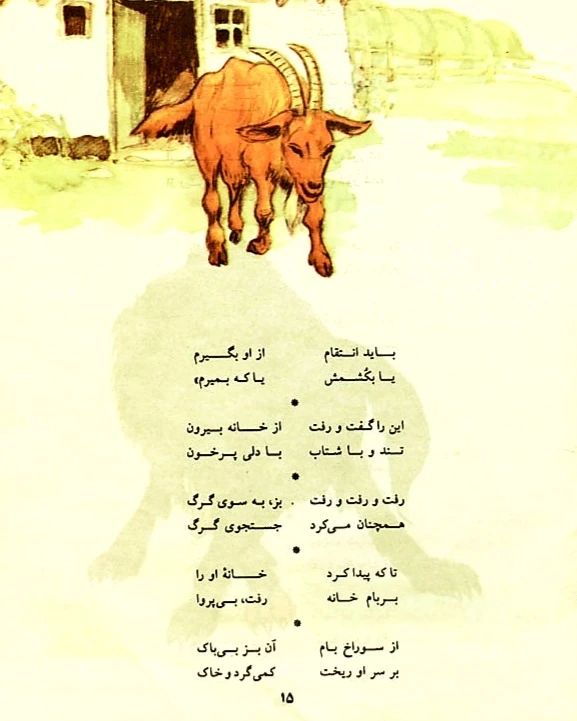 بایـد انـتقام از او بگـیرم
یـا بکُشـمش یـا کـه بـمیرم»
*
این را گـفت و رفت از خـانه بـیرون
تـند و بـا شتاب بـا دلی پـرخـون
*
رفت و رفت و رفت بز، بـه سـوی گـرگ
همچنان می‌کرد جسـتجوی گـرگ
*
تا که پیدا کـرد خـانهٔ او را
بـربام خـانه رفت، بـی‌پروا
*
از سـوراخ بـام آن بـز بی‌باک
بر سر او ریخت کمی‌گرد و خاک
۱۵